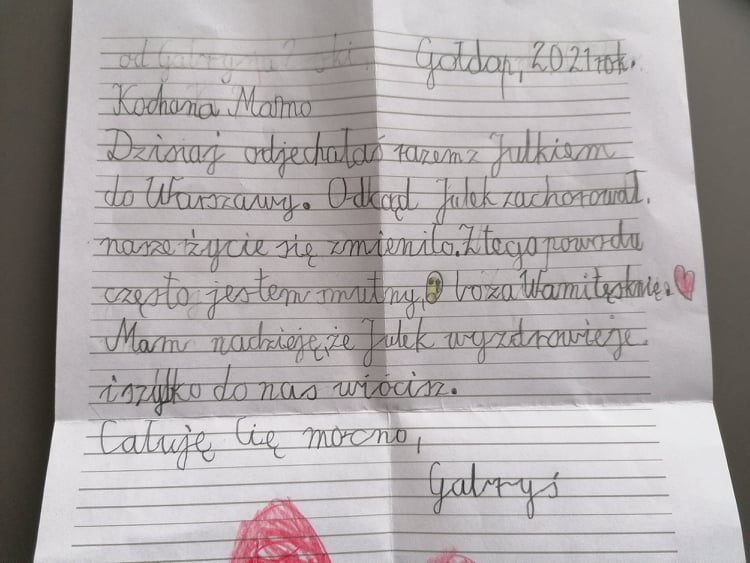 od Gabrysia
Gołdap, 2021 rok.
Kochana Mamo
Dzisiaj odjechałaś razem z Julkiem
do Warszawy. Odkąd Julek zachorował,
nasze życie się zmieniło. Z tego powodu
często jestem smutny, bo za Wami tęsknię.
Mam nadzieję, że Julek wyzdrowieje
i szybko do nas wrócisz.
Całuję Cię mocno,
Gabryś